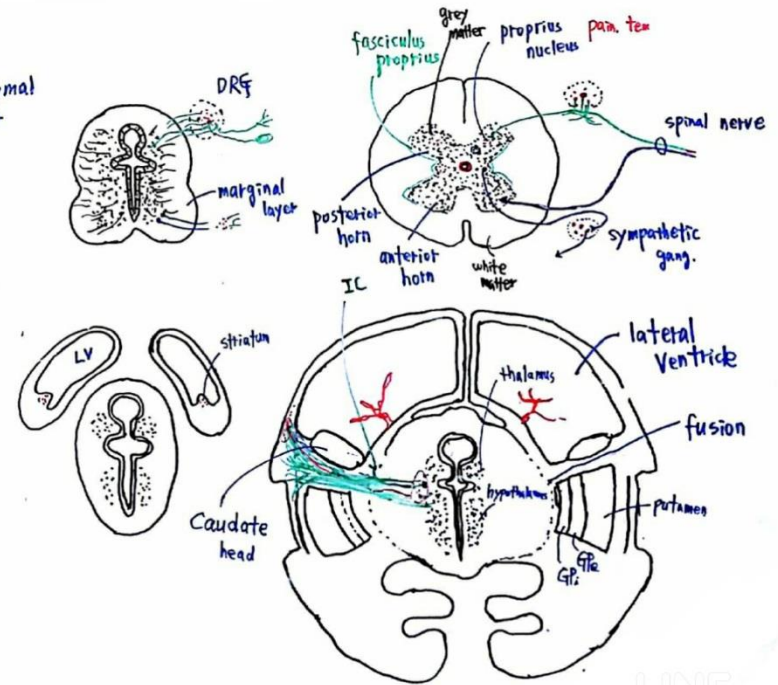 mal
DRG
marginal
layer
fasciculus
proprius
grey
matter
proprius
nucleus
pain. tem
spinal nerve
posterior
horn
anterior
horn
white
matter
sympathetic
gang.
LV
striatum
IC
thalamus
lateral
Ventricle
fusion
hypothalamus
putamen
GPe
GPi
Caudate
head